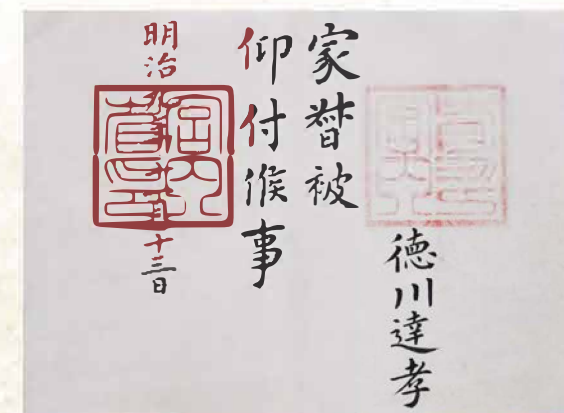 徳川達孝
家督被
仰付候事
明治
十三日